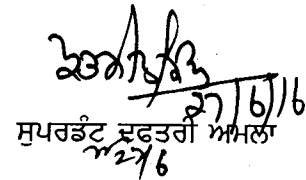 27/6/16
ਸੁਪਰਡੰਟ ਦਫਤਰੀ ਅਮਲਾ
27/6